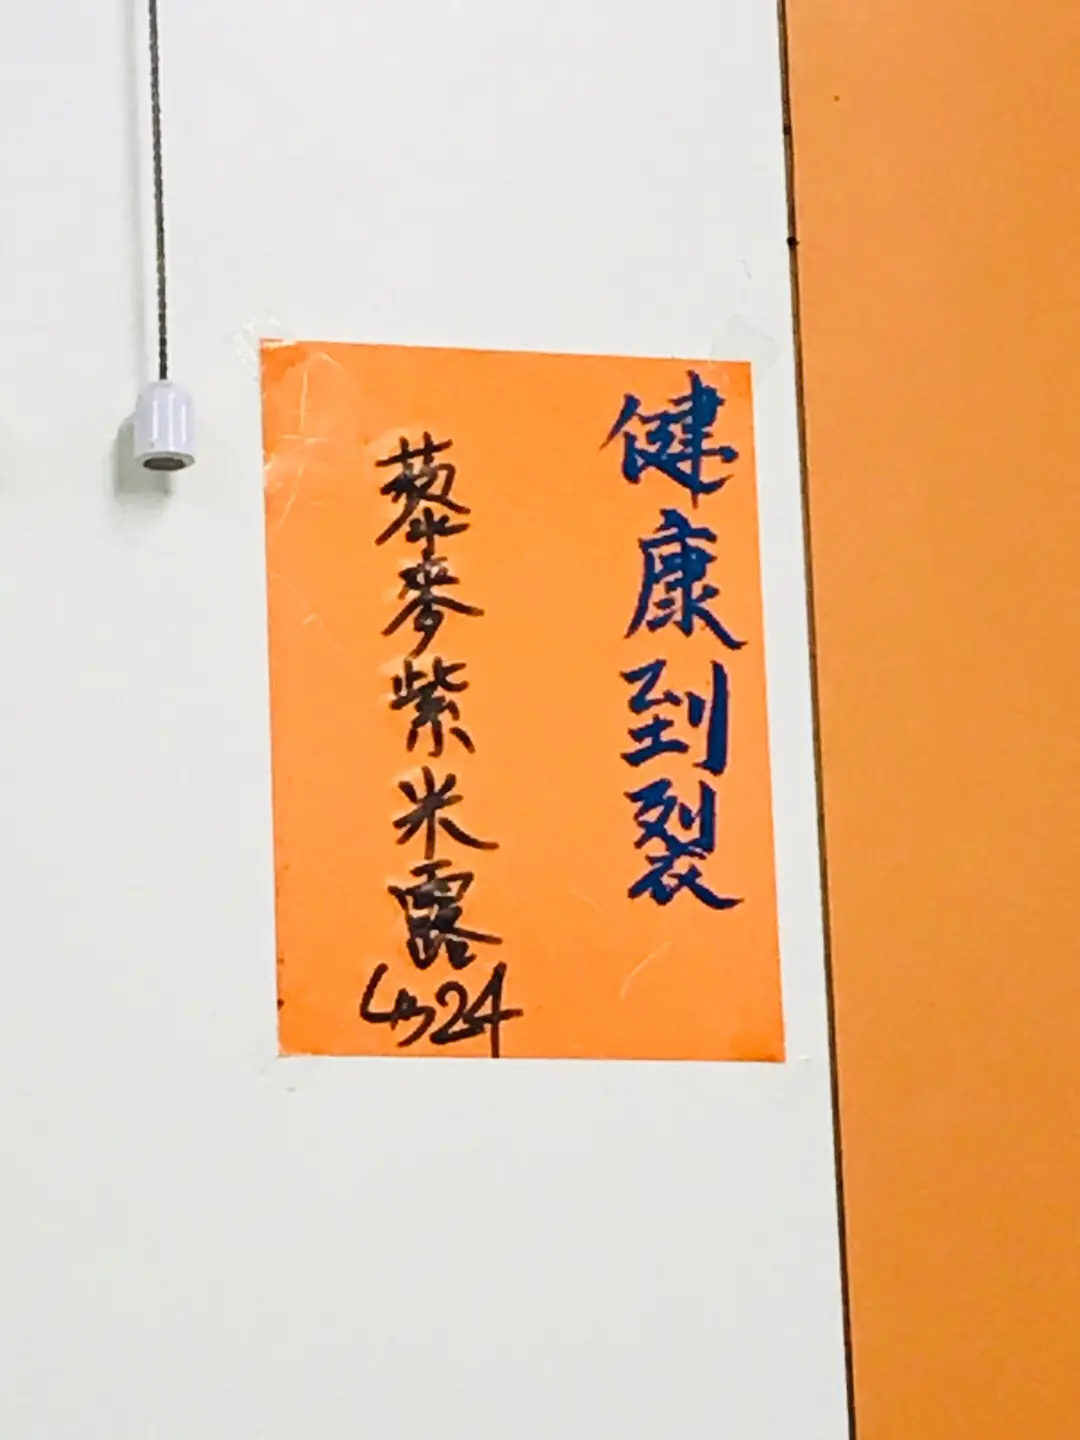 健康到裂
藜麥紫米露
$24